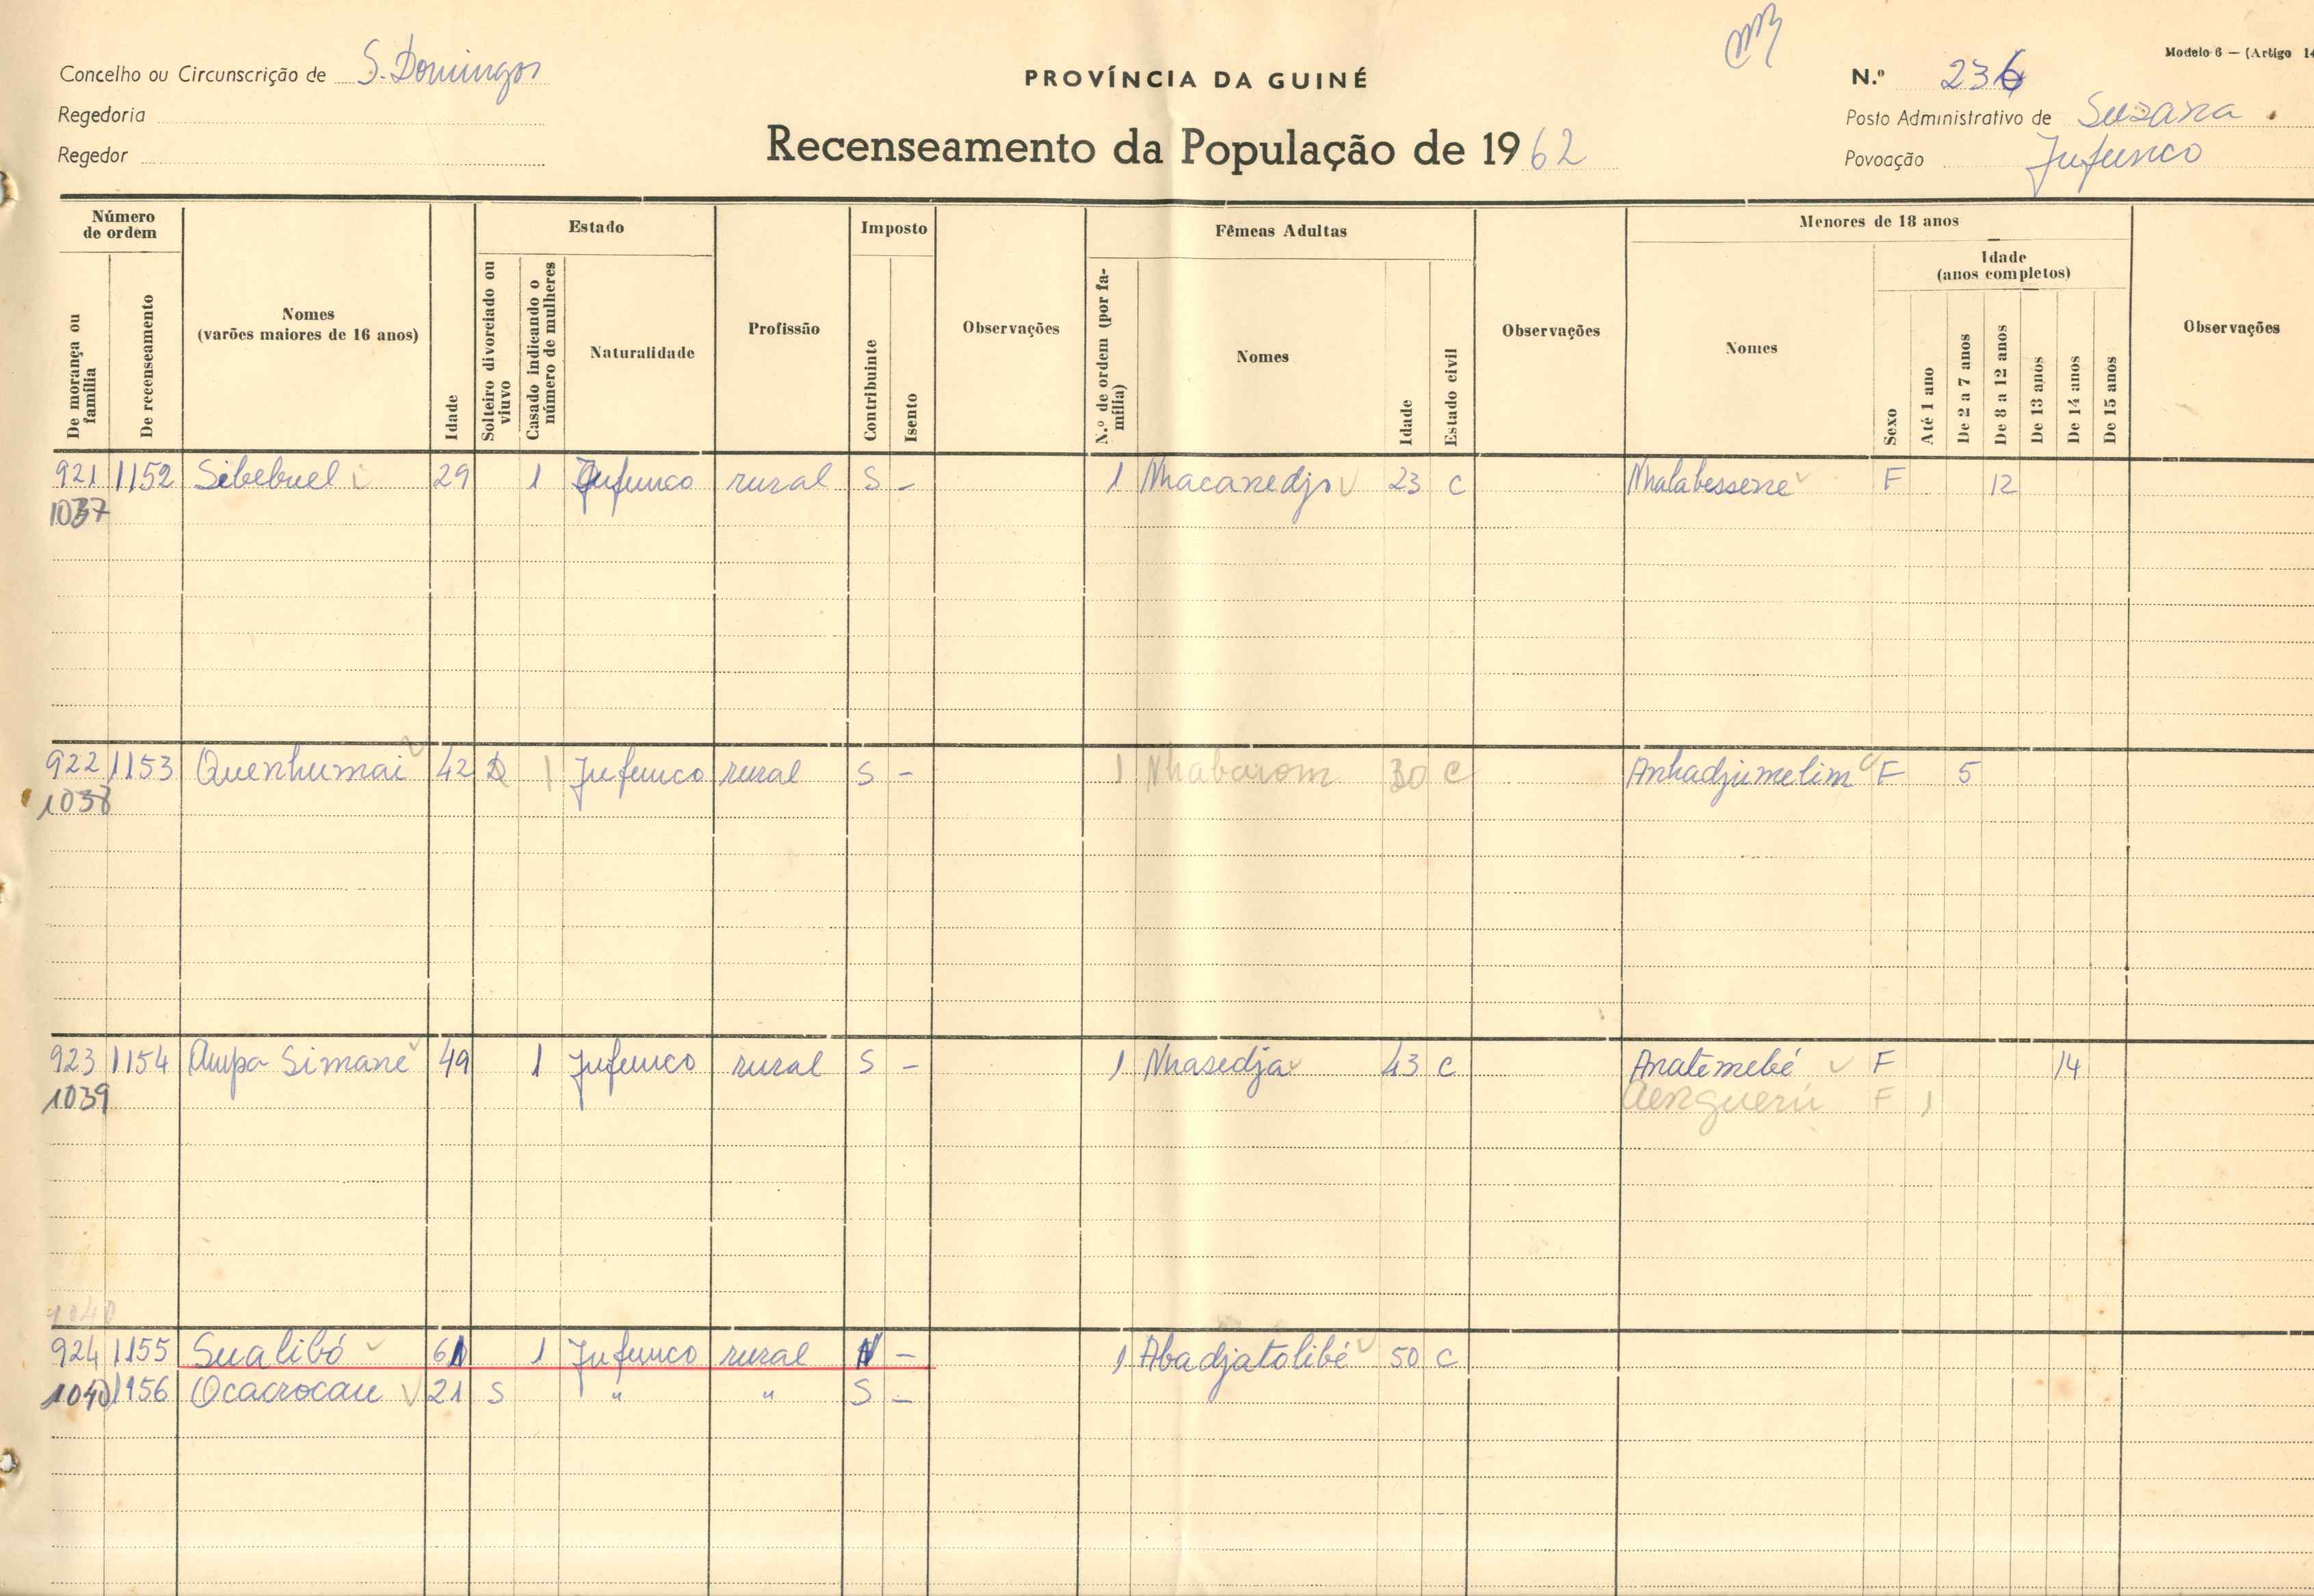 Modelo 6 — (Artigo 14
Concelho ou Circunscrição de S. Domingos
PROVÍNCIA DA GUINÉ
N.º 236
Regedoria
Posto Administrativo de Suzana
Regedor
Recenseamento da População de 1962
Povoação Jufunco
Número de ordem
De morança ou família
De recenseamento
Nomes
(varões maiores de 16 anos)
Idade
Estado
Solteiro divorciado ou viuvo
Casado indicando o número de mulheres
Naturalidade
Profissão
Imposto
Contribuinte
Isento
Observações
Fêmeas Adultas
N.º de ordem (por família)
Nomes
Idade
Estado civil
Observações
Menores de 18 anos
Nomes
Sexo
Idade
(anos completos)
Até 1 ano
De 2 a 7 anos
De 8 a 12 anos
De 13 anos
De 14 anos
De 15 anos
Observações
921 1152 Sibebuel 29 1 Jufunco rural S - 1 Nhacanedjo 23 C Nhalabessene F 12
1037
922 1153 Quenhumai 42 1 Jufunco rural S - 1 Nhabarom 30 C Anhadjumelim F 5
1038
923 1154 Ampa Simané 49 1 Jufunco rural S - 1 Nhasedja 43 C Anatemebé F 14
1039 F 1
1040
924 1155 Sualibó 61 1 Jufunco rural N - 1 Abadjatolibé 50 C
1040 1156 Ocacrocau 21 S " " S -